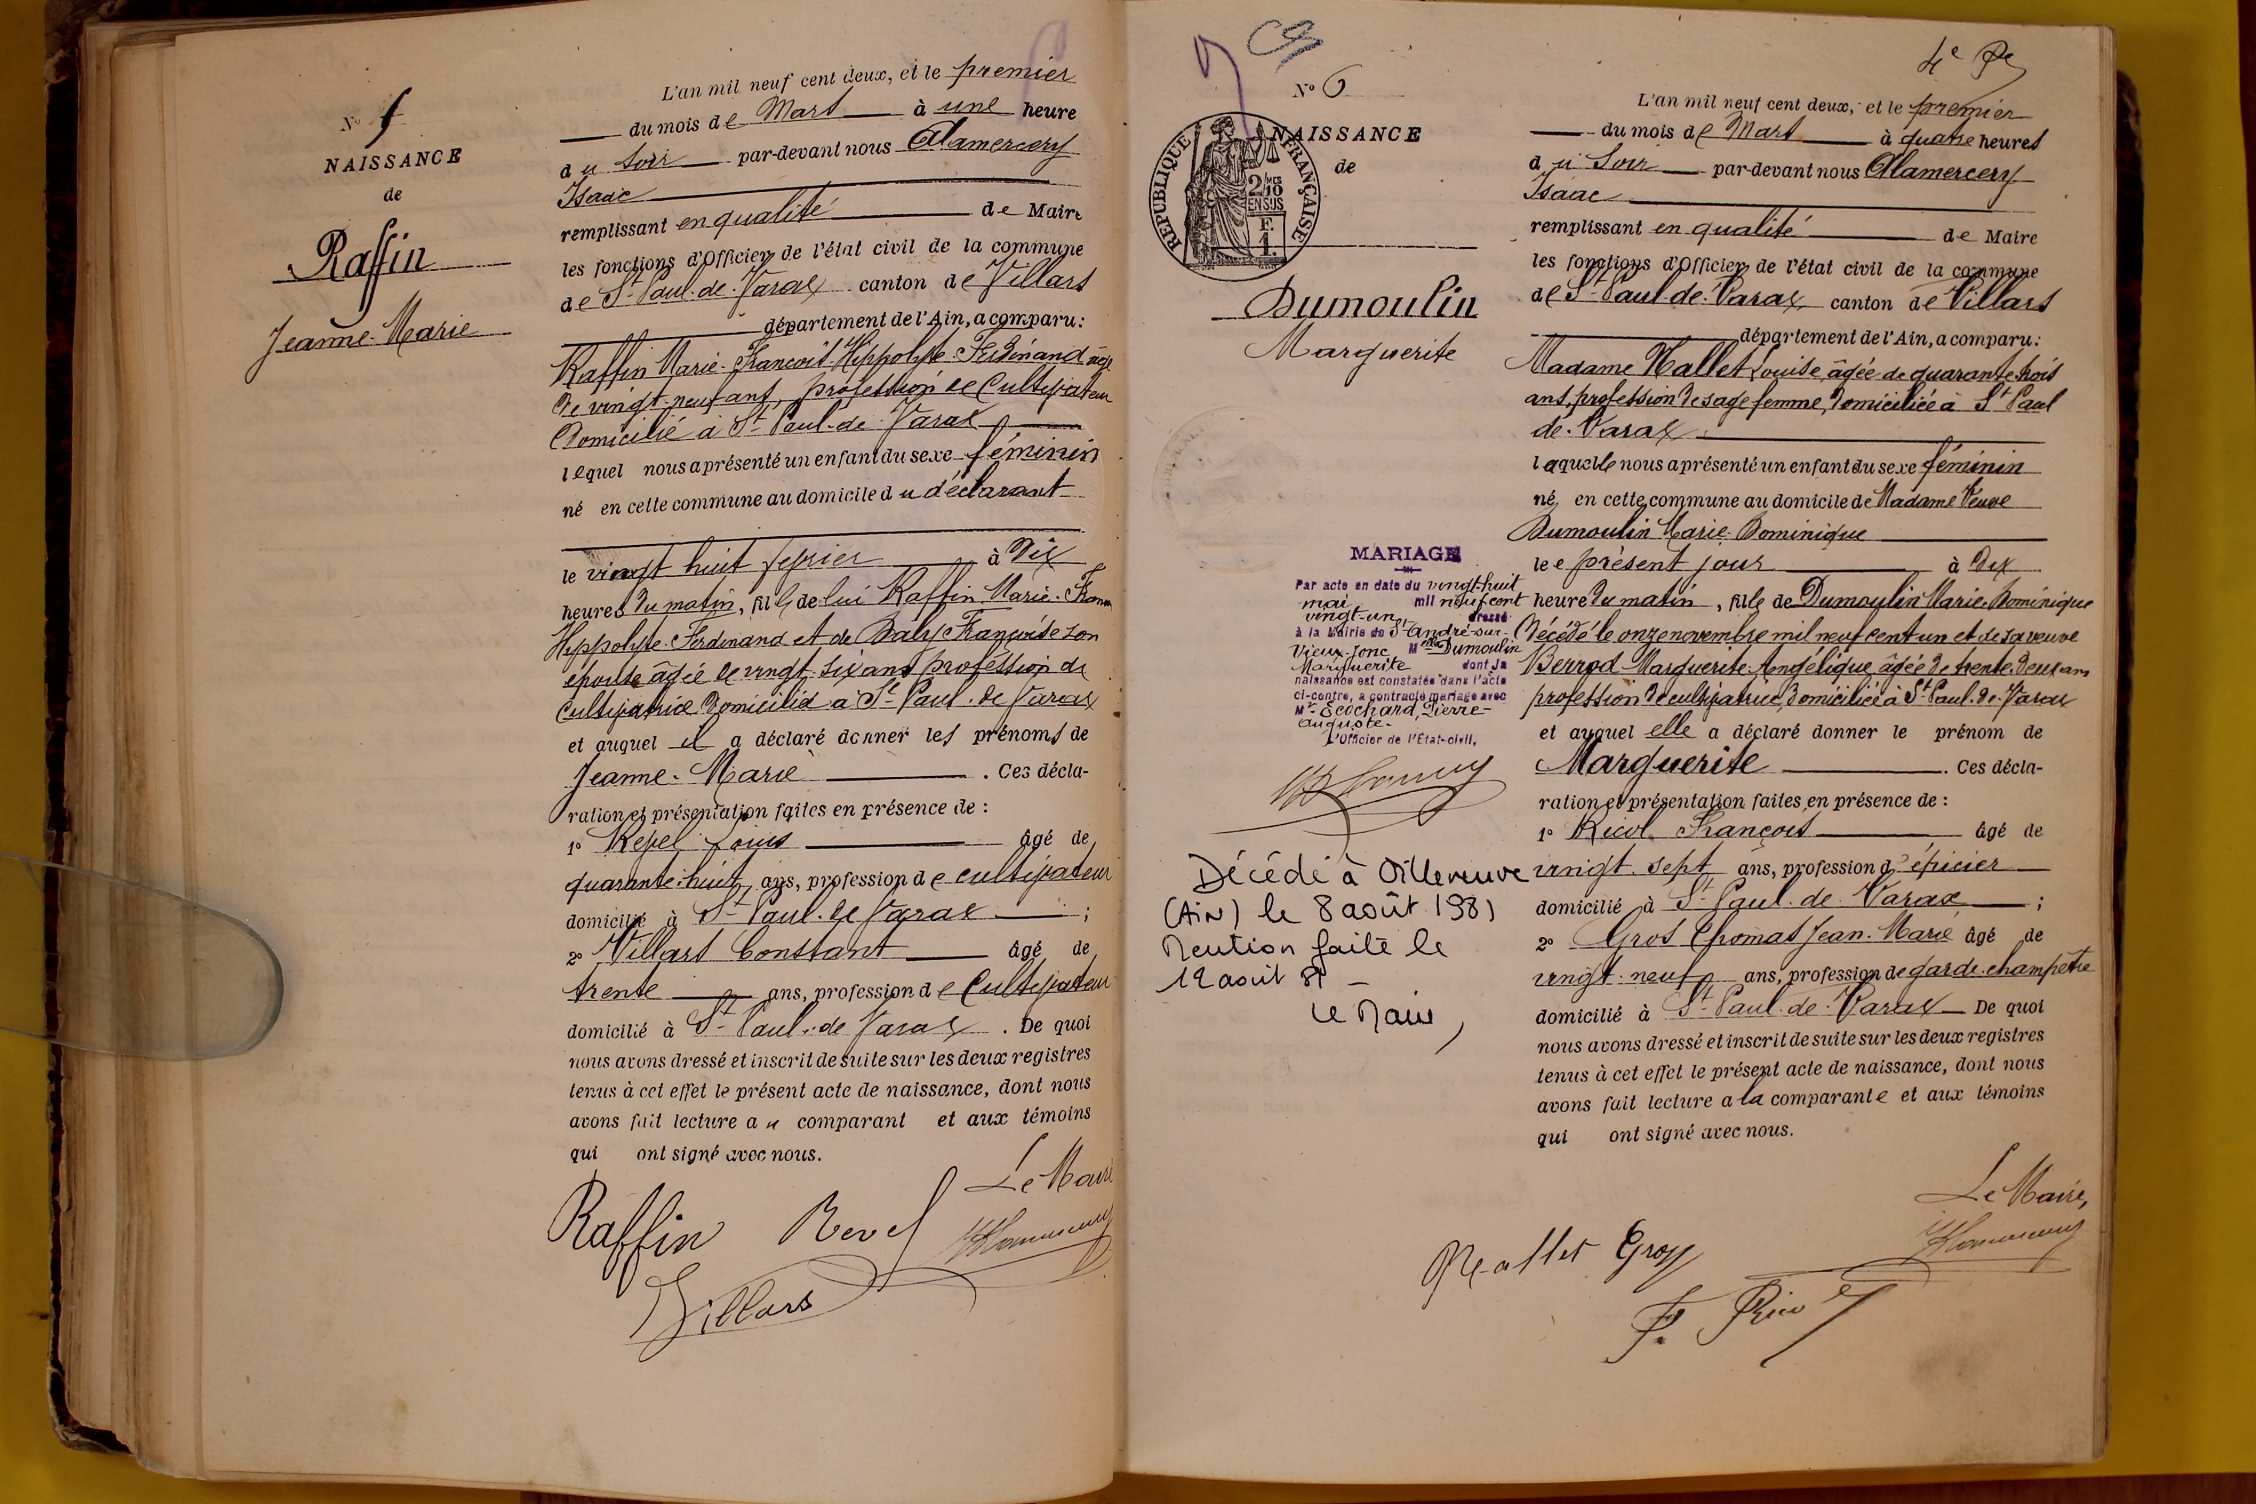 N° 5
NAISSANCE
de
Raffin
Jeanne-Marie
L'an mil neuf cent deux, et le premier
du mois de Mars à une heure
du soir par-devant nous Alamercery
Isaac
remplissant en qualité de Maire
les fonctions d'Officier de l'état civil de la commune
de St Paul-de-Varax canton de Villars
département de l'Ain, a comparu:
Raffin Marie-François-Hippolyte-Ferdinand âgé
de vingt-neuf ans, profession de Cultivateur
Domicilié à St Paul-de-Varax
lequel nous a présenté un enfant du sexe féminin
né en cette commune au domicile du déclarant
le vingt huit février à Dix
heures du matin, fille de lui Raffin Marie-
Hippolyte-Ferdinand et de Françoise son
épouse âgée de vingt-six ans profession de
Cultivatrice Domiciliée à St Paul-de Varax
et auquel il a déclaré donner les prénoms de
Jeanne-Marie. Ces décla-
ration et présentation faites en présence de :
1° Revel Louis âgé de
quarante-huit ans, profession de cultivateur
domicilié à St Paul-de Varax ;
2° Villars Constant âgé de
trente ans, profession de Cultivateur
domicilié à St Paul-de Varax. De quoi
nous avons dressé et inscrit de suite sur les deux registres
tenus à cet effet le présent acte de naissance, dont nous
avons fait lecture au comparant et aux témoins
qui ont signé avec nous.
Le Maire
Raffin Revel
Villars
4e
N° 6
RÉPUBLIQUE FRANÇAISE
NAISSANCE
de
Dumoulin
Marguerite
MARIAGE
Par acte en date du vingt-huit
mai mil neuf cent
vingt-un dressé
à la Mairie de St André-sur-
Vieux-Jonc Melle Dumoulin
Marguerite dont la
naissance est constatée dans l'acte
ci-contre, a contracté mariage avec
Mr Ecochard, Pierre-
Auguste.
L'Officier de l'État-civil,
Décédé à Villeneuve
(Ain) le 8 août 1981
Mention faite le
12 août 81
Le Maire,
L'an mil neuf cent deux, et le premier
du mois de Mars à quatre heures
du soir par-devant nous Alamercery
Isaac
remplissant en qualité de Maire
les fonctions d'Officier de l'état civil de la commune
de St Paul-de-Varax canton de Villars
département de l'Ain, a comparu:
Madame Mallet Louise, âgée de quarante-trois
ans, profession de sage femme, domiciliée à St Paul
de-Varax
laquelle nous a présenté un enfant du sexe féminin
né en cette commune au domicile de Madame Veuve
Dumoulin Marie-Dominique
le présent jour à dix
heure du matin, fille de Dumoulin Marie-Dominique
Décédé le onze novembre mil neuf cent un et de sa veuve
Berrod Marguerite-Angélique âgée de trente-deux ans
profession de cultivatrice, domiciliée à St Paul-de-Varax
et auquel elle a déclaré donner le prénom de
Marguerite. Ces décla-
ration et présentation faites en présence de :
1° Ricol François âgé de
vingt-sept ans, profession d'épicier
domicilié à St Paul-de-Varax ;
2° Gros Thomas Jean-Marie âgé de
vingt-neuf ans, profession de garde-champêtre
domicilié à St Paul-de-Varax De quoi
nous avons dressé et inscrit de suite sur les deux registres
tenus à cet effet le présent acte de naissance, dont nous
avons fait lecture a la comparante et aux témoins
qui ont signé avec nous.
Le Maire,
Mallet Gros
F.